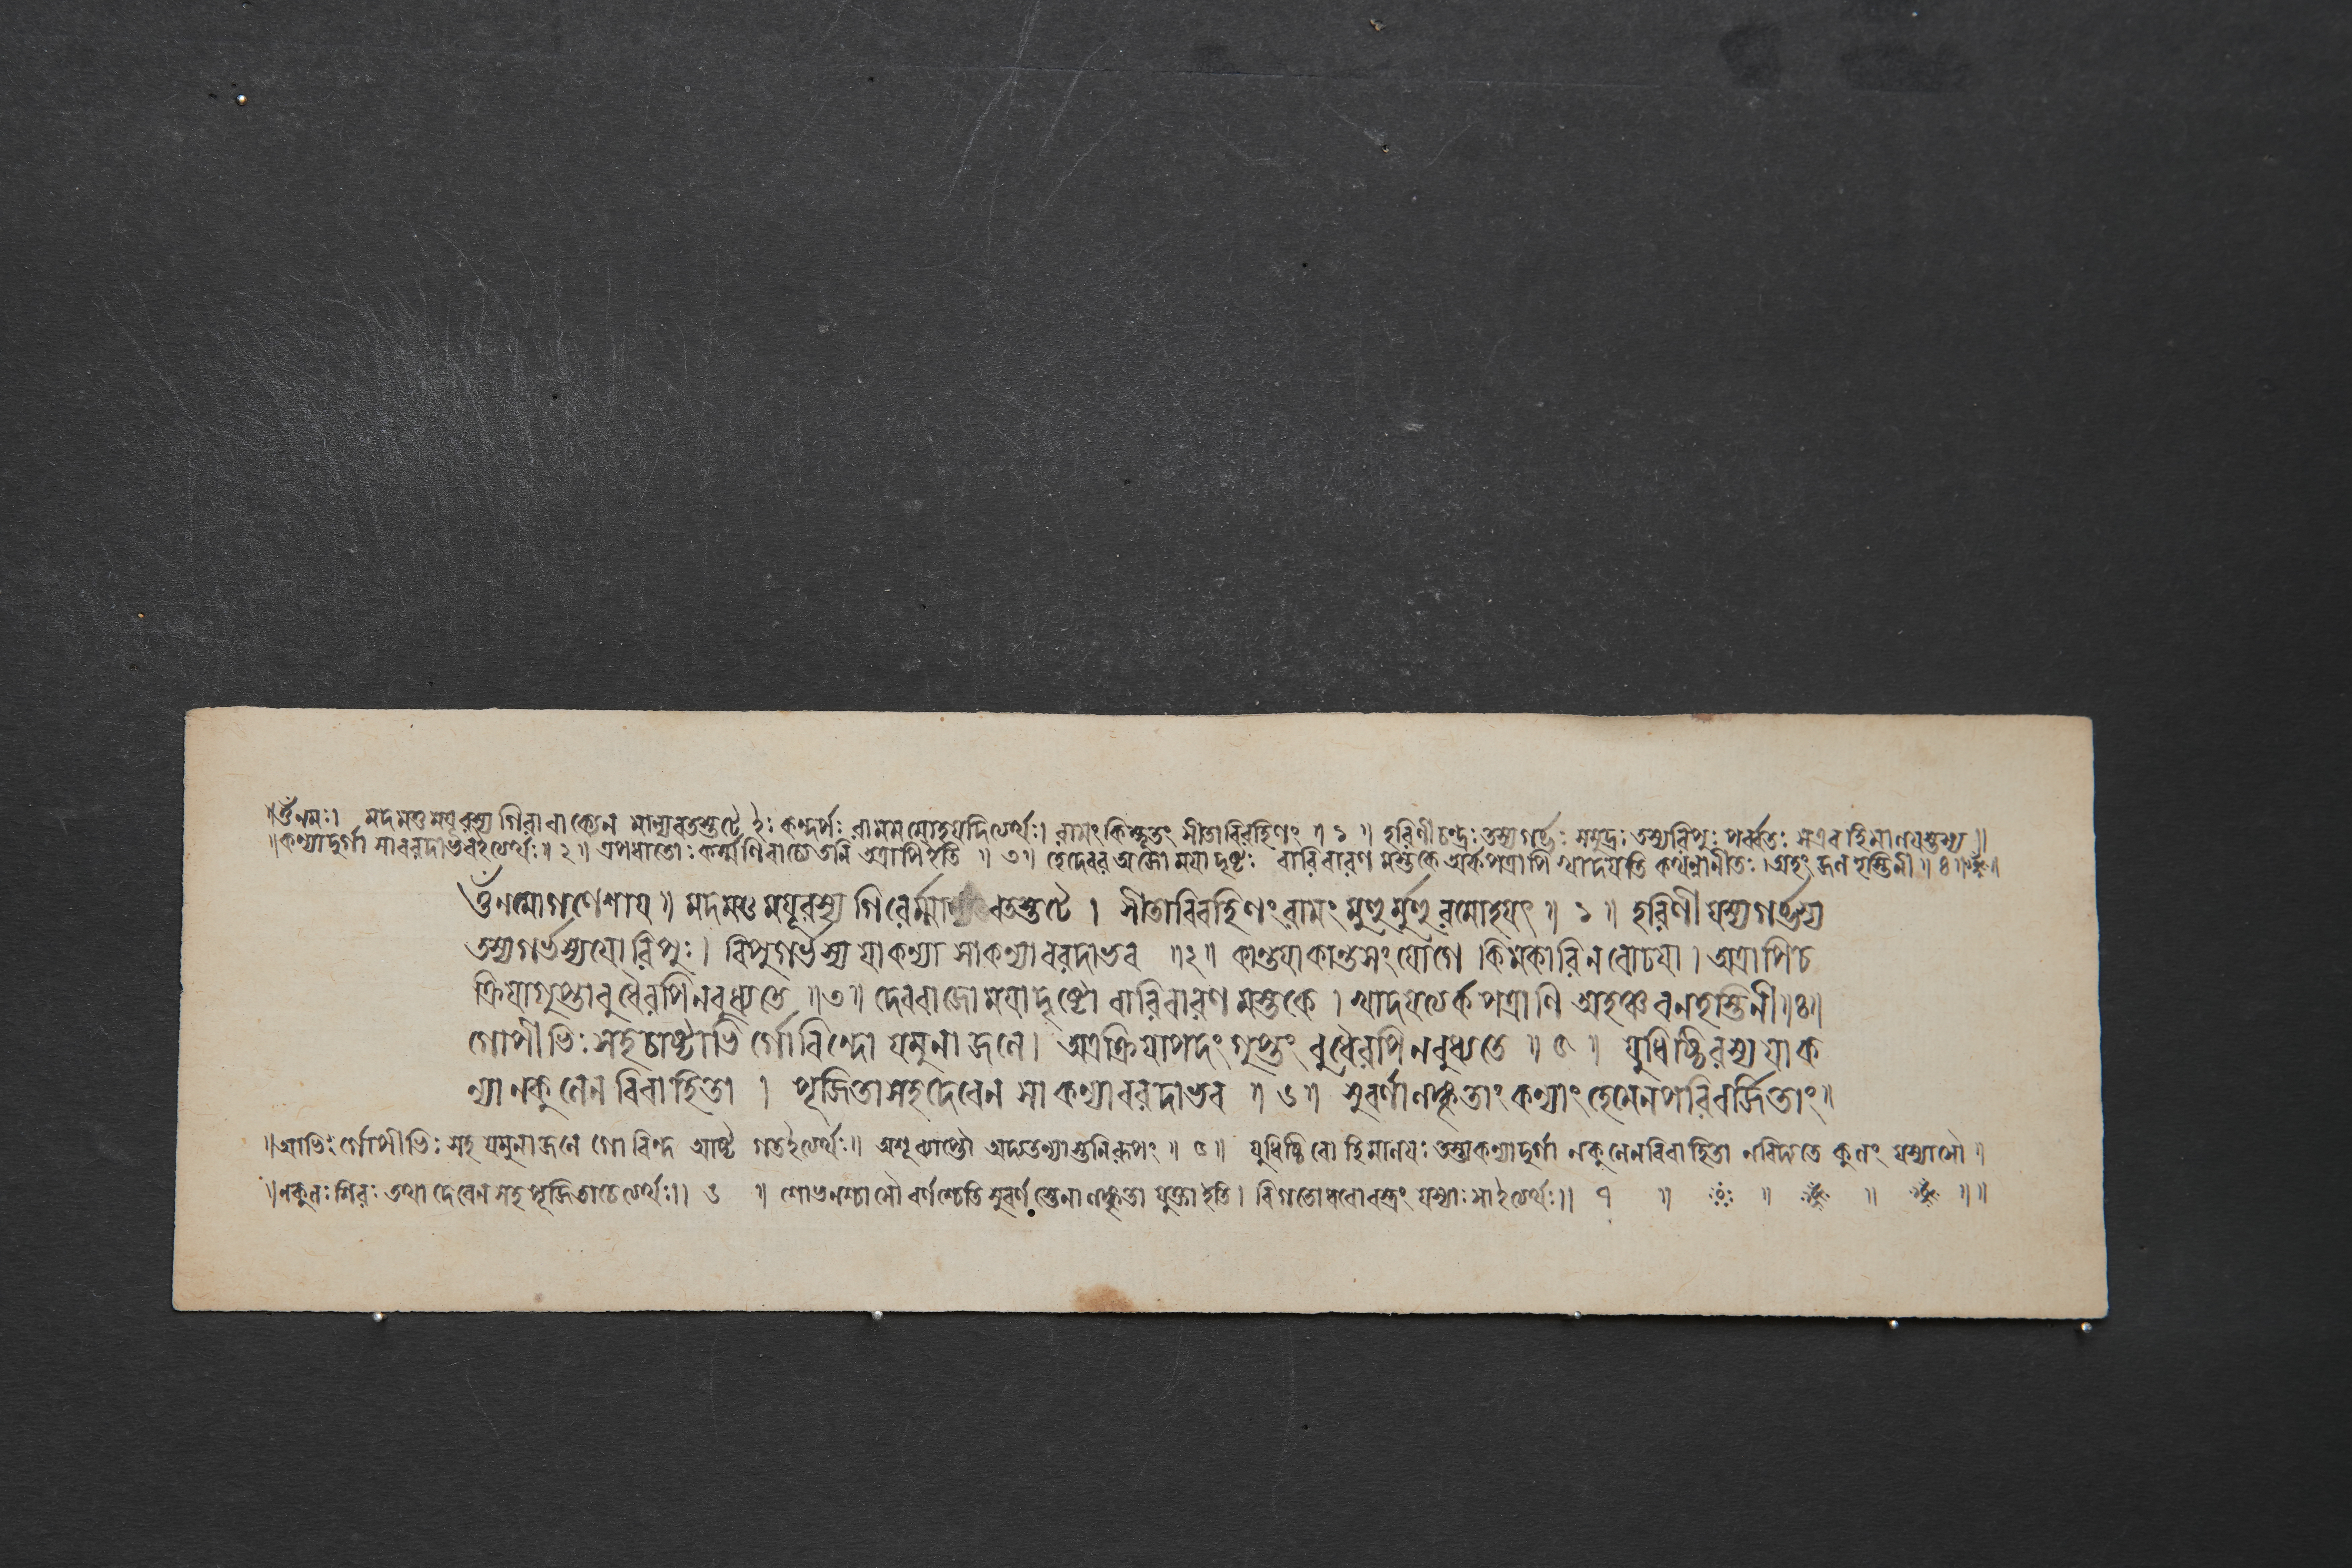 ॥ওঁ নমঃ। মদমত্তময়ূরস্য গিরাবাক্যেন মাল্যবতস্তটে ইঃ কন্দর্পঃ রামমমোহয়দিত্যর্থঃ। রামং কিম্ভূতং সীতাবিরহিণং ॥ ১ ॥ হরিণীচন্দ্রঃ তস্যগর্ভঃ সমুদ্রঃ তস্যরিপুঃ পর্ব্বতঃ সএবহিমালয়স্তস্য॥
॥কন্যাদুর্গা সাবরদাভবইত্যর্থঃ॥ ২॥ কর্ম্মণিবাচ্যে তনি অত্রাপিইতি ॥ ৩॥ হেদেবর অজো ময়াদৃষ্টঃ বারিবারণ মস্তকে অর্কপত্রাপি খাদয়তি কথন্নানীতঃ।অহং জলহস্তিনী॥ ৪॥
ওঁনমোগণেশায় ॥ মদমত্তময়ূরস্য গিরের্ম্মা বতস্তটে । সীতাবিরহিণংরামং মুহুর্মুহুরমোহয়ৎ ॥ ১ ॥ হরিণীয়স্যগর্ভস্য
তস্যগর্ভস্যয়োরিপুঃ। রিপুগর্ভস্য য়াকন্যা সাকন্যাবরদাভব ॥২॥ কান্তয়াকান্তসংয়োগে কিমকারিনবোঢয়া। অত্রাপিচ
ক্রিয়াগুপ্তাবুধৈরপিনবুধ্যতে ॥৩॥ দেবরাজো ময়াদৃষ্টো বারিবারণ মস্তকে। খাদয়ত্যর্কপত্রাণি অহঞ্চবনহস্তিনী॥৪॥
গোপীভিঃসহচাষ্টাভি র্গোবিন্দো য়মুনাজলে। অত্রক্রিয়াপদংগুপ্তং বুধৈরপিনবুধ্যতে ॥ ৫ ॥ য়ুধিষ্ঠিরস্য য়াক
ন্যা নকুলেন বিবাহিতা । পূজিতাসহদেবেন সা কন্যাবরদাভব ॥ ৬॥ সুবর্ণালঙ্কৃতাং কন্যাং হেমেনপরিবর্জিতাং॥
॥আভিঃ র্গোপীভিঃ সহ য়মুনাজলে গোবিন্দ আষ্ট গতইত্যর্থঃ॥ ॥ ৫॥ য়ুধিষ্ঠিরো হিমালয়ঃ তস্যকন্যাদুর্গা নকুলেনবিবাহিতা নবিদ্যতে কুলং য়স্যাসৌ ॥
॥নকুলঃ শিবঃ তথা দেবেন সহ পূজিতাচেত্যর্থঃ॥ ৬ ॥ শোভনশ্চাসৌ বর্ণশ্চেতি সুবর্ণস্তেনালঙ্কৃতা য়ুক্তাইতি। বিগতোধবোবস্ত্রং য়স্যাঃ সাইত্যর্থঃ॥ ৭ ॥ ॥ ॥ ॥॥